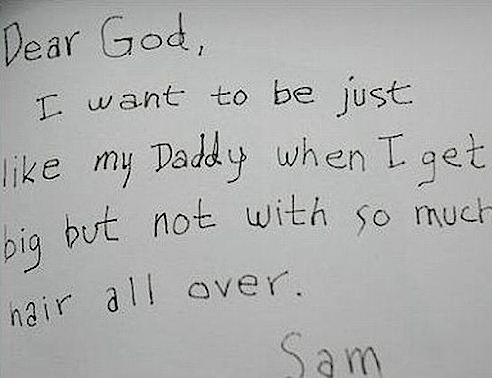 Dear God,
I want to be just
like my Daddy when I get
big but not with so much
hair all over.
Sam